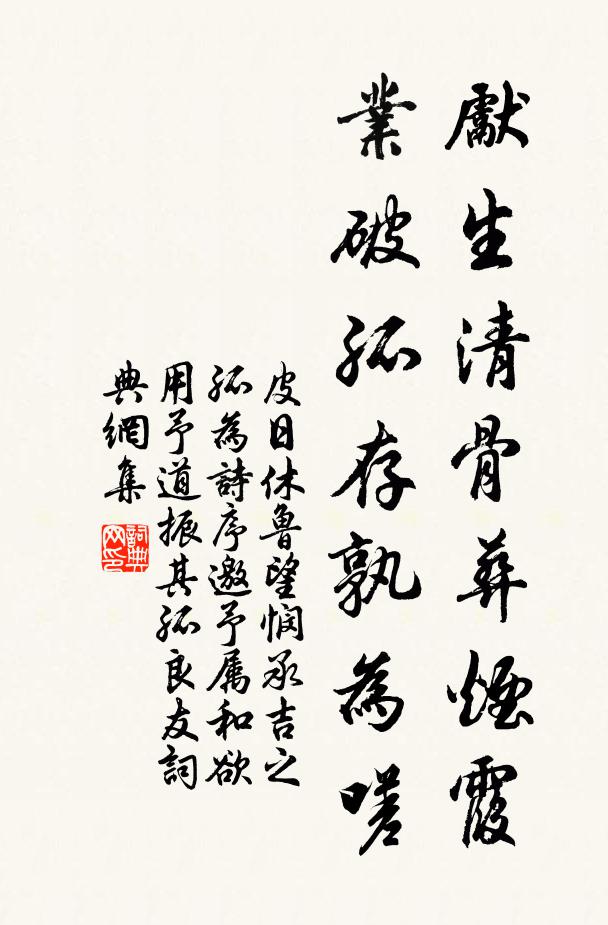 獻生清骨葬煙霞
業破孤存孰為嗟
皮日休魯望憫承吉之
孤為詩序邀予属和欲
用予道振其孤良友詞
典網集
詞典
网印